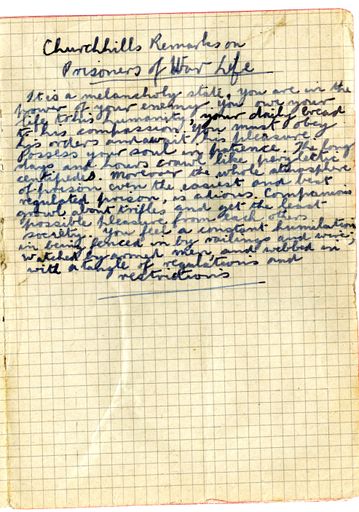 Churchhills Remarks on
Prisoners of War Life
It is a melancholy state, you are in the
power of your enemy. You owe your
life to his humanity, your daily bread
to his compassion, you must obey
his orders and await his pleasure,
possess your soul in patience. The long
days and hours crawl like
centipedes. Moreover the whole atmosphere
of prison even the easiest and best
regulated prison, is odious. Companions
growl about trifles and get the least
possible pleasure from each others
society. You feel a constant humulation
in being fenced in by railings and wire,
watched by armed men, and webbed in
with a tangle of regulations and
restrictions